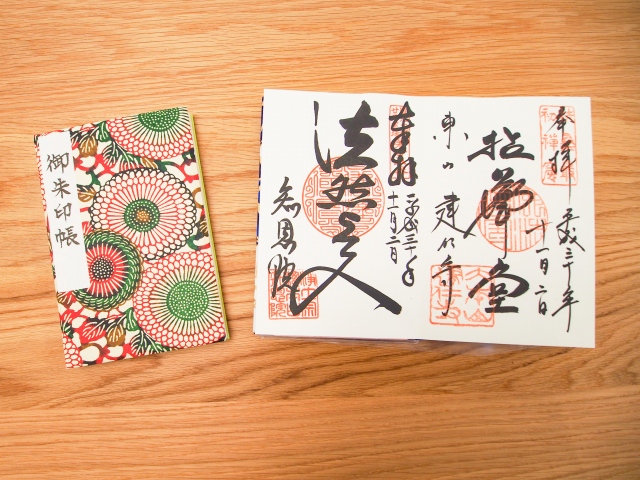 御朱印帳
奉拝 平成三十年
十一月二日
拈華堂
東山 建仁寺
奉拝 平成三十年
十一月二日
法然上人
知恩院